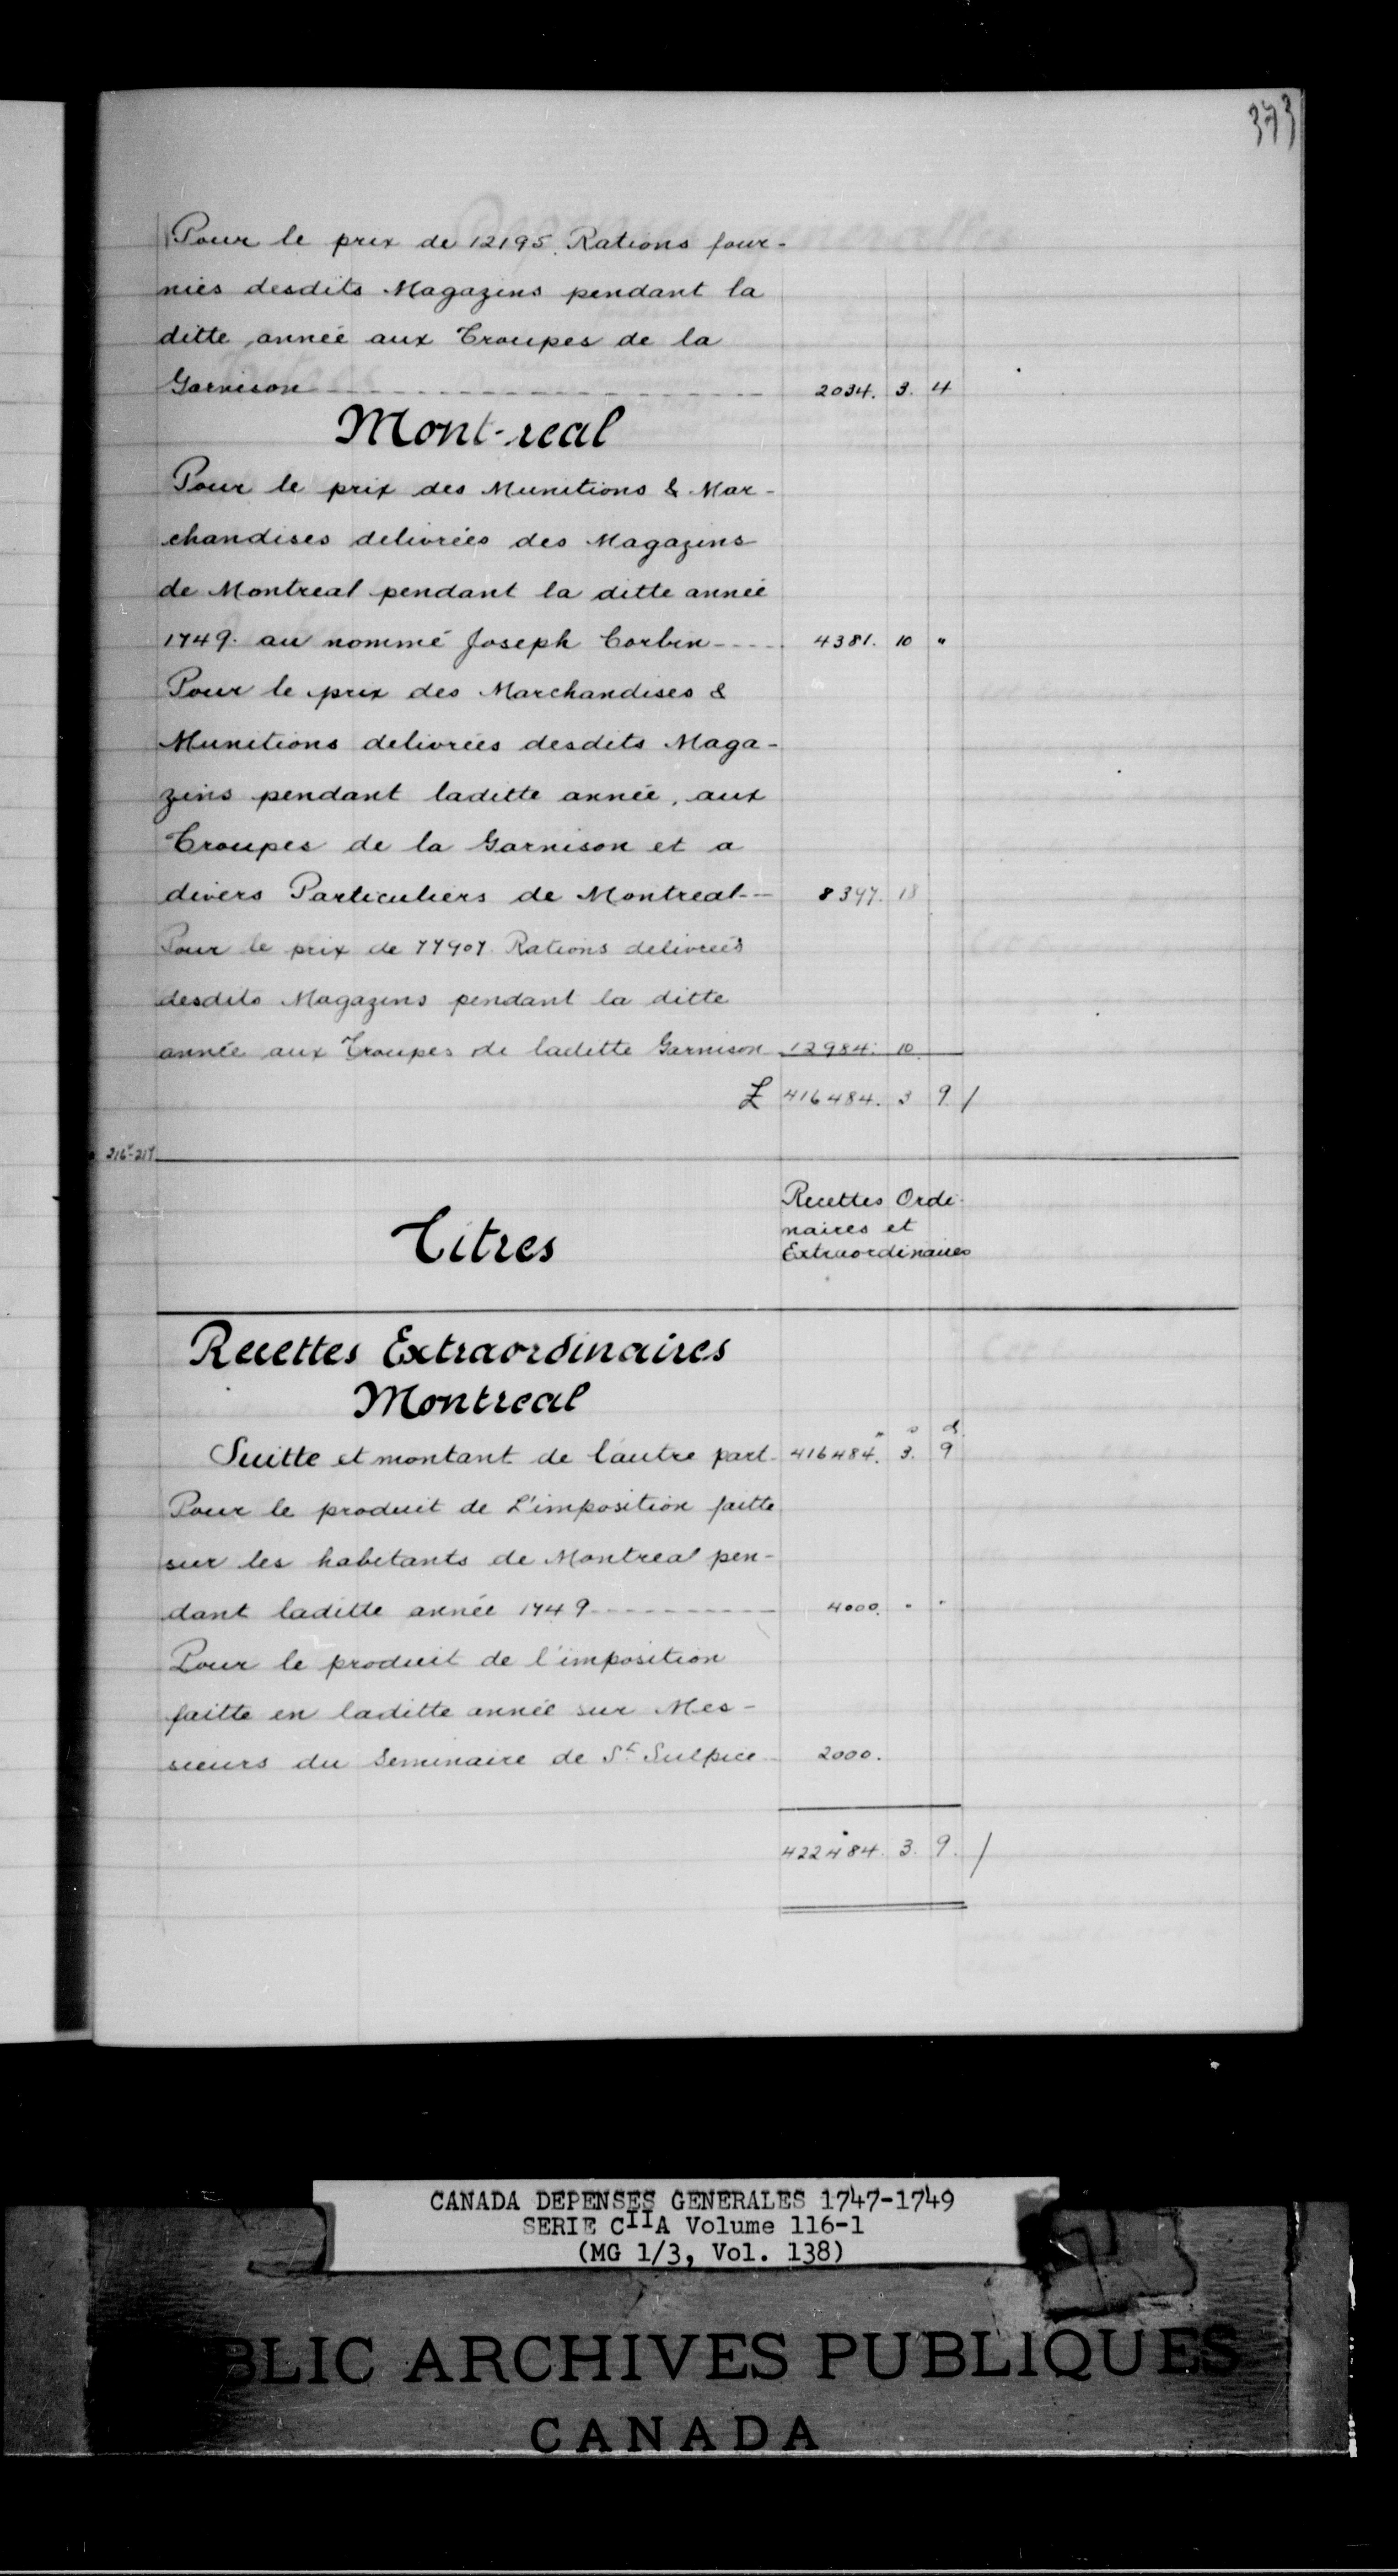 373
Pour le prix de 12195. Rations four-
niés desdits Magazins pendant la
ditte année aux Troupes de la
Garnison 2034. 3. 4
Mont-real
Pour le prix des Munitions & Mar-
chandises delivrées des Magazins
de Montreal pendant la ditte année
1749. au nommé Joseph Corbin 4381. 10 "
Pour le prix des Marchandises &
Munitions delivrées desdits Maga-
zins pendant laditte année, aux
Troupes de la Garnison et a
divers Particuliers de Montreal 8397. 18
Pour le prix de 77907 Rations delivreés
desdits Magazins pendant la ditte
année aux Troupes de laditte Garnison 12984. 10.
£ 416484. 3 9 /
216v-217
Titres
Recettes Ordi-
naires et
Extraordinaires
Recettes Extraordinaires
Montreal
" s d
Suitte et montant de l'autre part 416484. 3. 9
Pour le produit de L'imposition faitte
sur les habitants de Montreal pen-
dant laditte année 1749 4000. " "
Pour le produit de l'imposition
faitte en laditte année sur Mes-
sieurs du Seminaire de St Sulpice 2000.
422484. 3. 9. /
CANADA DEPENSES GENERALES 1747-1749
SERIE CIIA Volume 116-1
(MG 1/3, Vol. 138)
BLIC ARCHIVES PUBLIQUES
CANADA